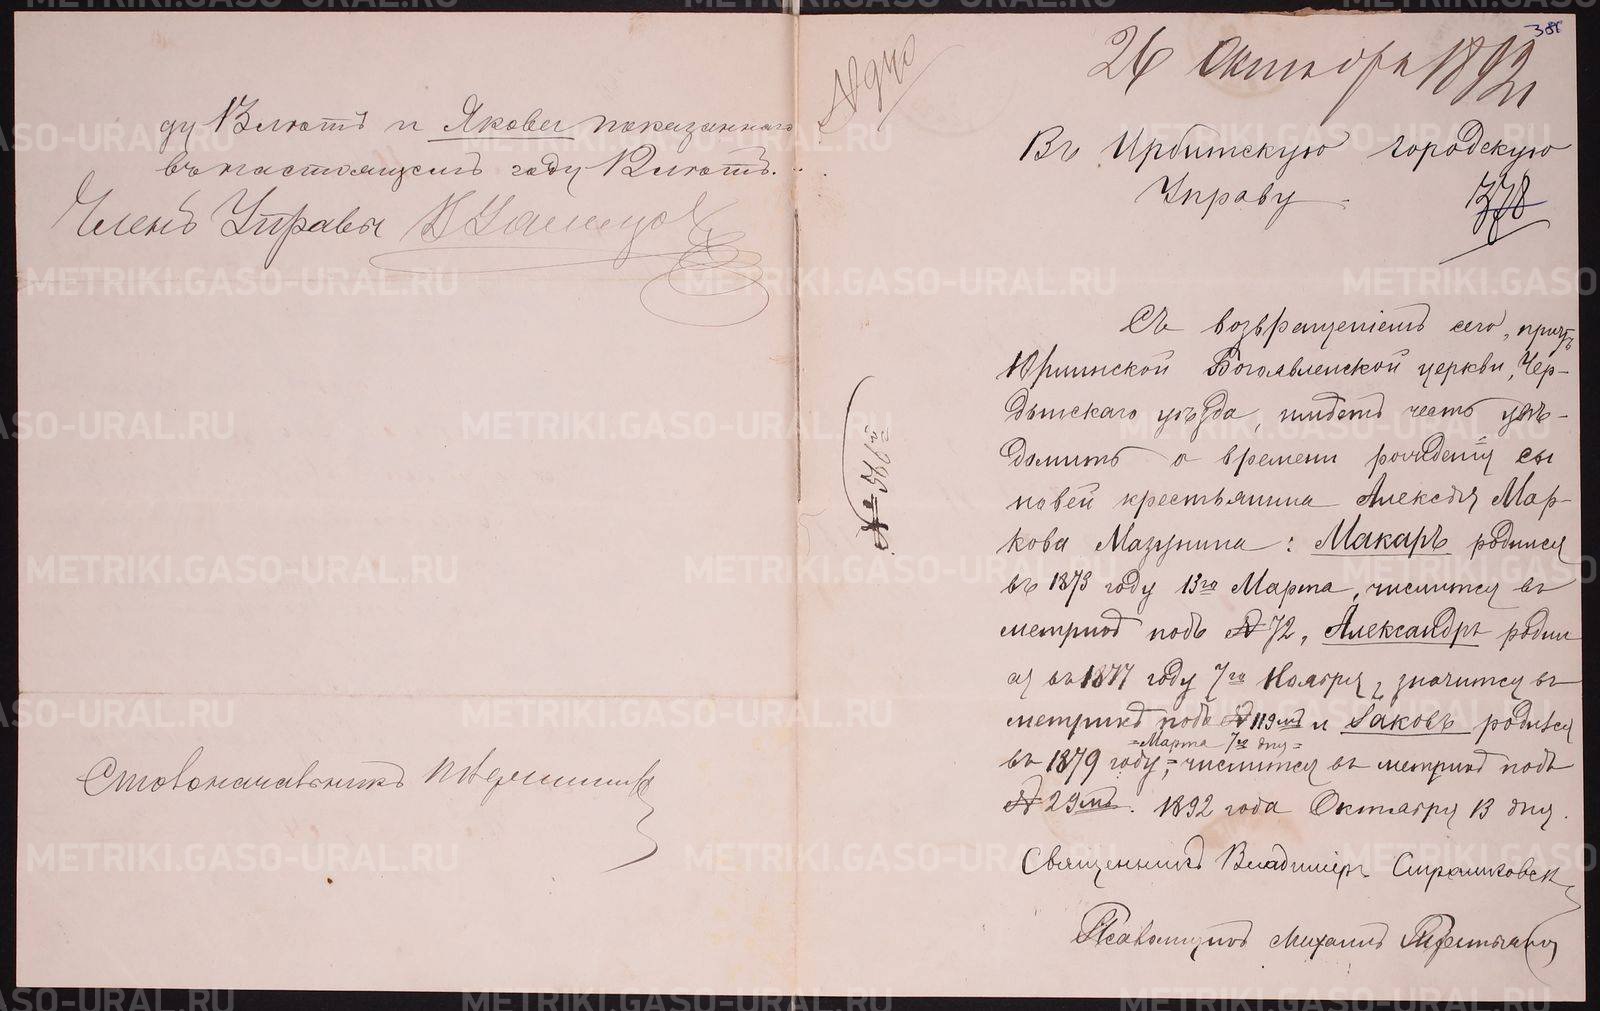 ду 13 лѣтъ и Якова показаннаго
въ настоящемъ году 12 лѣтъ.
Членъ Управы
Столоначальникъ
№ 940
386
26 Октября 1892
Въ Ирбитскую городскую
Управу
1378
Съ возвращеніемъ сего, причтъ
Юрлинской Богоявленской церкви, Чер-
дынскаго уѣзда, имѣетъ честь увѣ-
домить о времени рожденія сы
новей крестьянина Алексѣя Мар-
кова Мазунина: Макаръ родился
въ 1873 году 13го Марта, числится въ
метрикѣ подъ № 72, Александръ родил
ся въ 1877 году 7го Ноября, значится въ
метрикѣ подъ № 119мъ и Іаковъ родился
=Марта 7го дня=
въ 1879 году, числится въ метрикѣ подъ
№ 29мъ. 1892 года Октября 13 дня.
Священникъ Владиміръ
Псаломщикъ Михаилъ Третьяковъ
METRIKI.GASO-URAL.RU